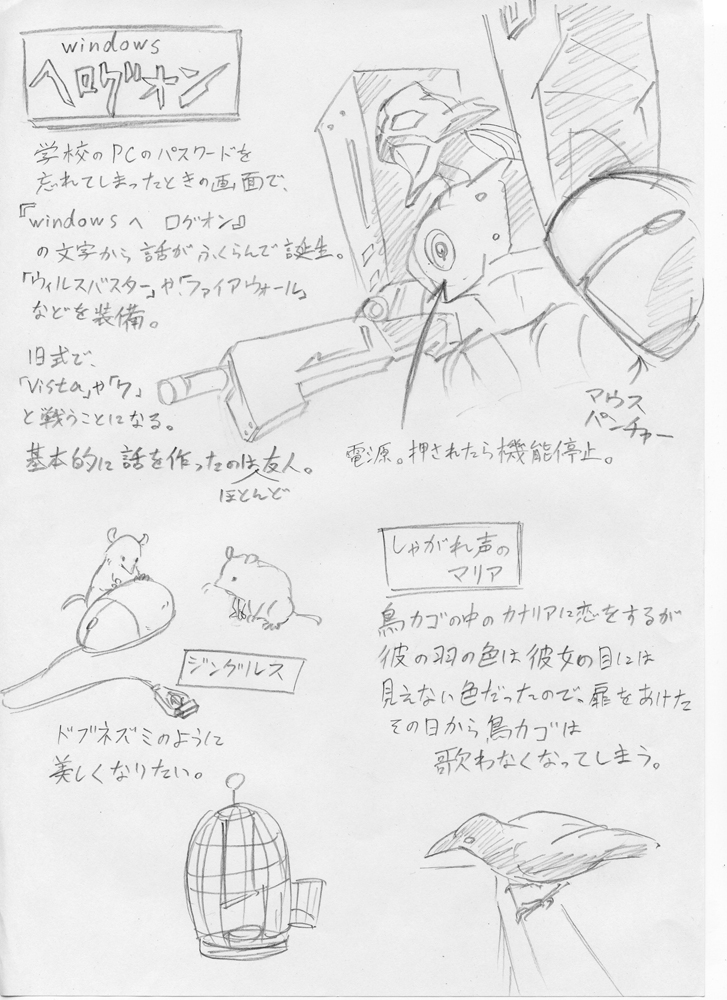 windows
ヘログオン
学校のPCのパスワードを
忘れてしまったときの画面で、
『windowsへ ログオン』
の文字から話がふくらんで誕生。
「ウィルスバスター」や、「ファイアウォール」
などを装備。
旧式で、
「Vista」や「7」
と戦うことになる。
基本的に話を作ったのは友人。
ほとんど
マウス
パンチャー
電源。押されたら機能停止。
ジングルス
ドブネズミのように
美しくなりたい。
しゃがれ声の
マリア
鳥カゴの中のカナリアに恋をするが
彼の羽の色は彼女の目には
見えない色だったので、扉をあけた
その日から鳥カゴは
歌わなくなってしまう。